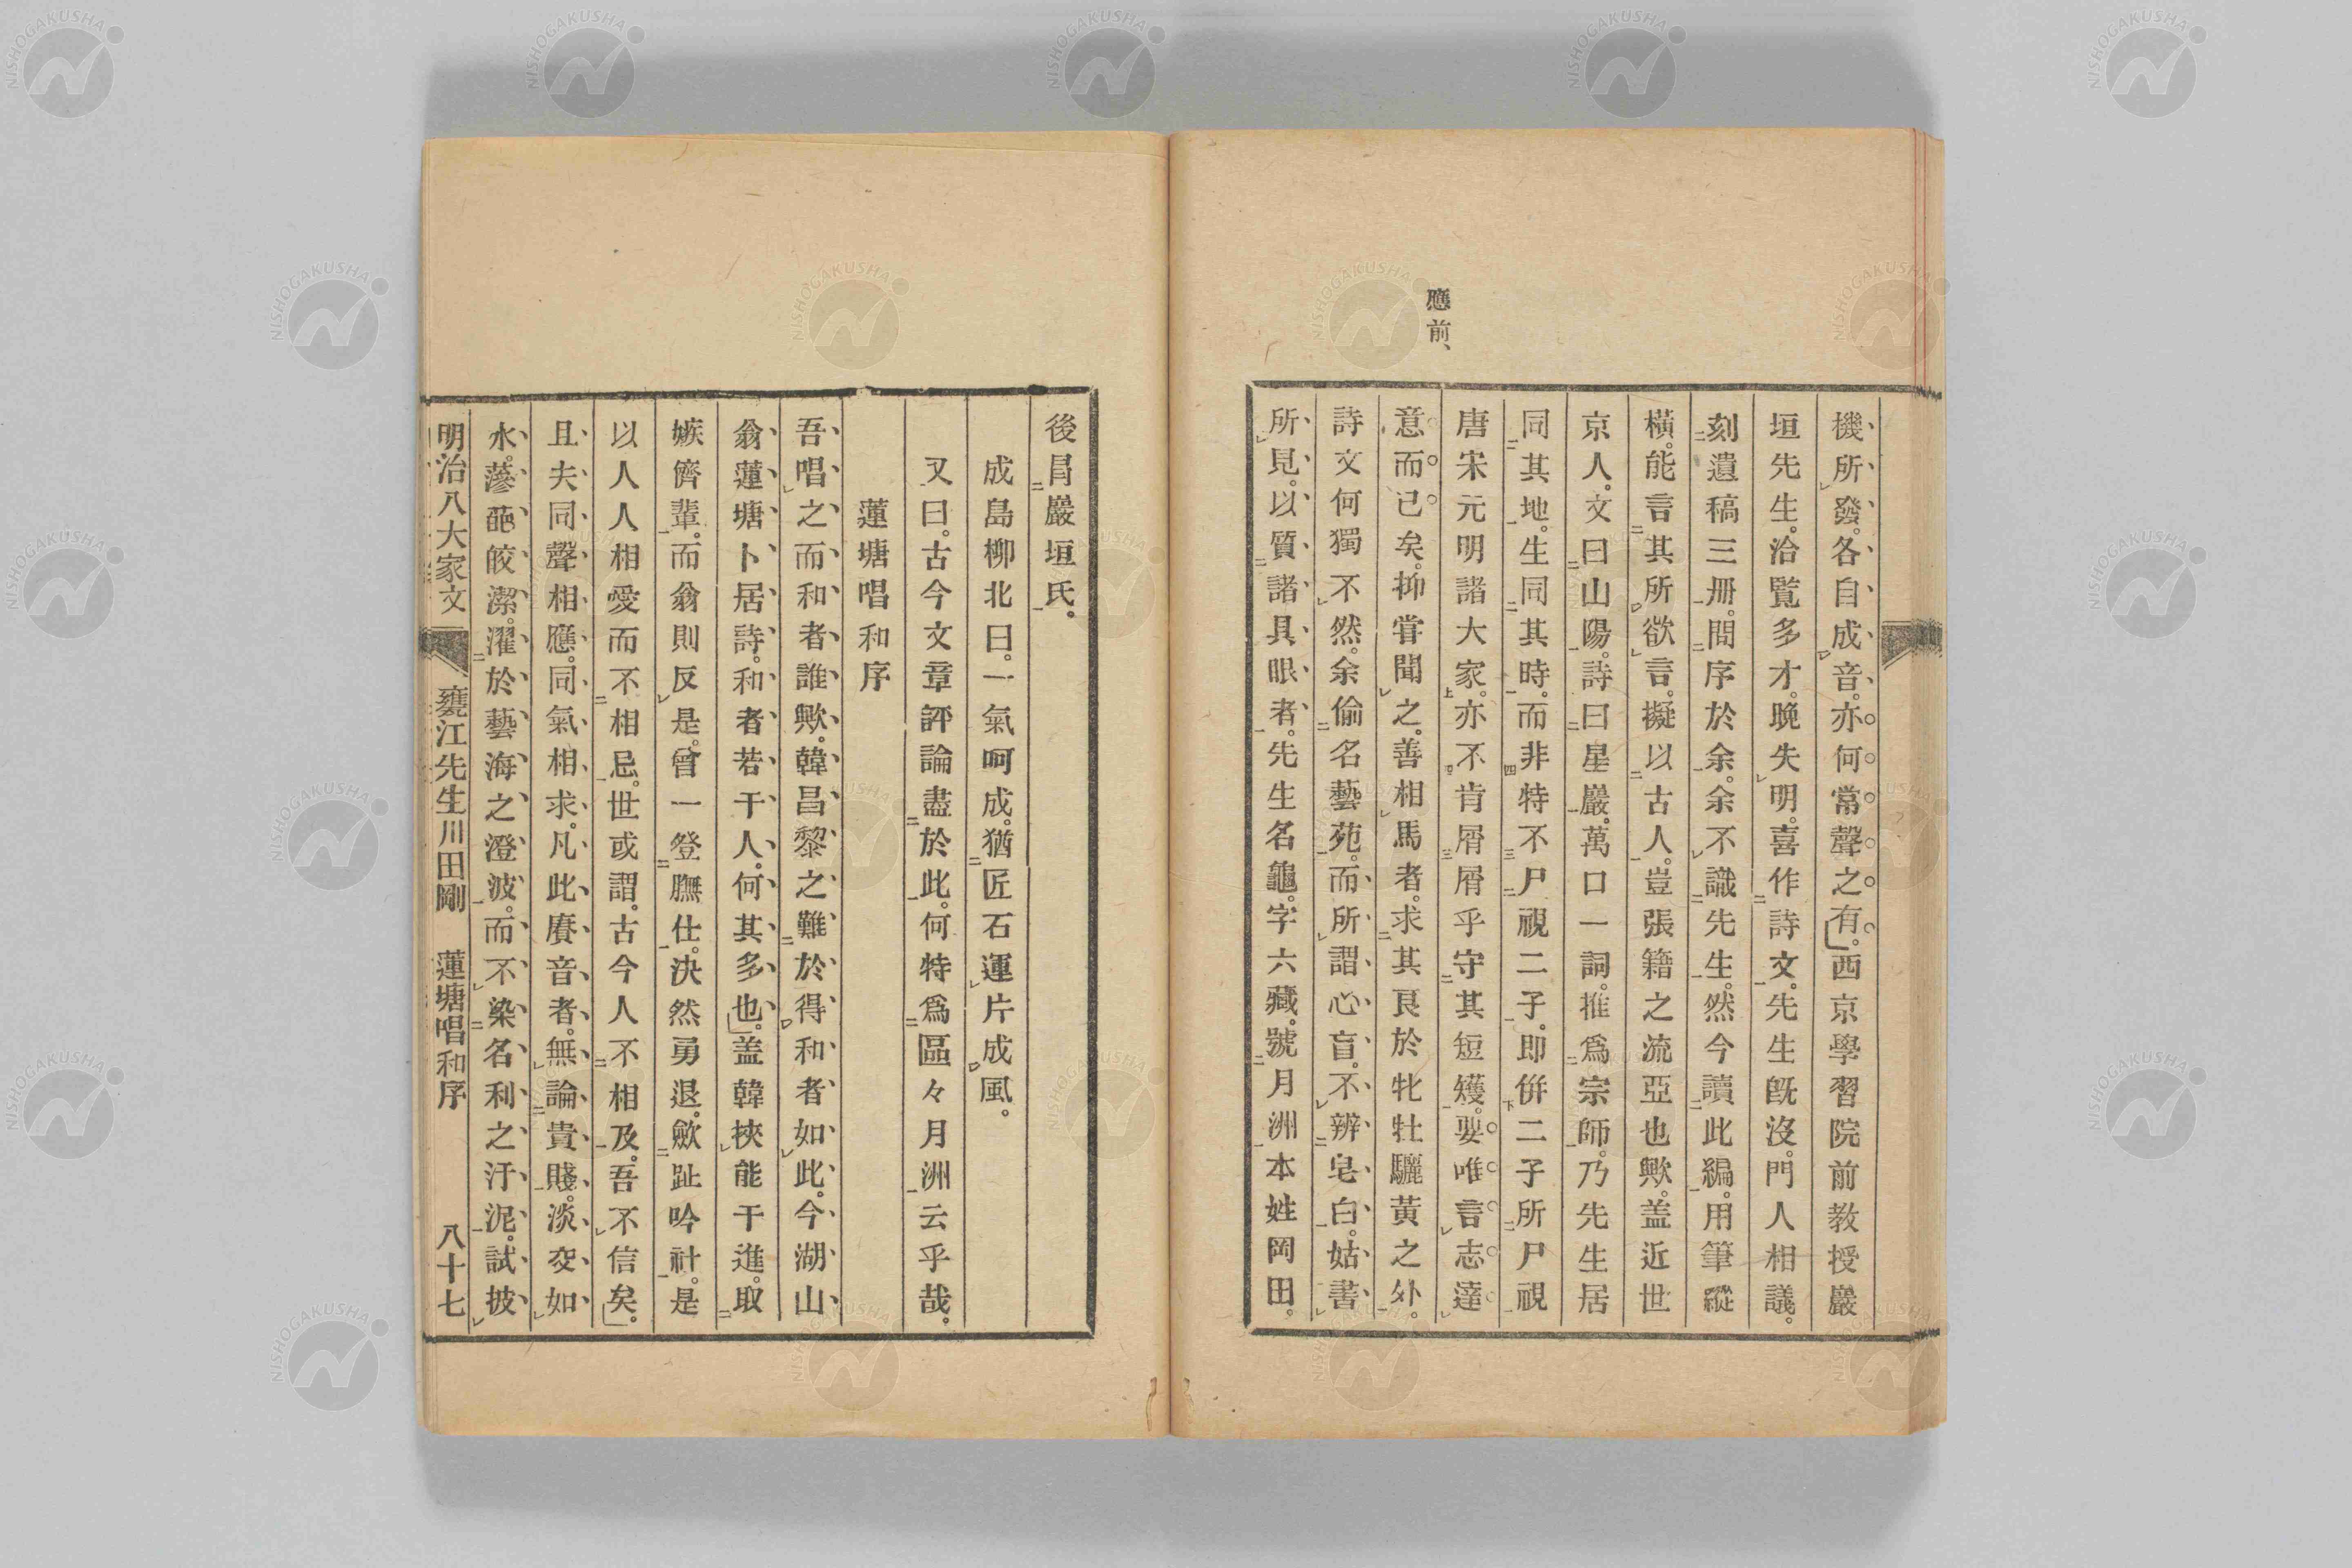 應前、
機所發。各自成音。亦何常聲之有。西京學習院前教授巖
垣先生。洽覽多才。晚失明。喜作詩文。先生既沒。門人相議。
刻遺稿三册。問序於余。余不識先生。然今讀此編。用筆縱
橫。能言其所欲言。擬以古人。豈張籍之流亞也歟。盖近世
京人。文曰山陽。詩曰星巖。萬口一詞。推爲宗師。乃先生居
同其地。生同其時。而非特不尸視二子。即併二子所尸視
唐宋元明諸大家。亦不肯屑屑乎守其短矱。要唯言志達
意而已矣。抑甞聞之。善相馬者。求其良於牝牡驪黃之外。
詩文何獨不然。余偷名藝苑。而所謂心盲。不辨皂白。姑書
所見。以質諸具眼者。先生名龜。字六藏。號月洲。本姓岡田。
後冒巖垣氏。
成島柳北曰。一氣呵成。猶匠石運片成風。
又曰。古今文章評論盡於此。何特爲區々月洲云乎哉。
蓮塘唱和序
吾唱之而和者誰歟。韓昌黎之難於得和者如此。今湖山
翁蓮塘卜居詩。和者若干人。何其多也。盖韓挾能干進。取
嫉儕輩。而翁則反是。曾一登膴仕。決然勇退。斂趾吟社。是
以人人相愛而不相忌。世或謂。古今人不相及。吾不信矣。
且夫同聲相應。同氣相求。凡此賡音者。無論貴賤。淡交如
水。蔘葩皎潔。濯於藝海之澄波。而不染名利之汙泥。試披
明治八大家文 甕江先生川田剛 蓮塘唱和序 八十七
NISHOGAKUSHA